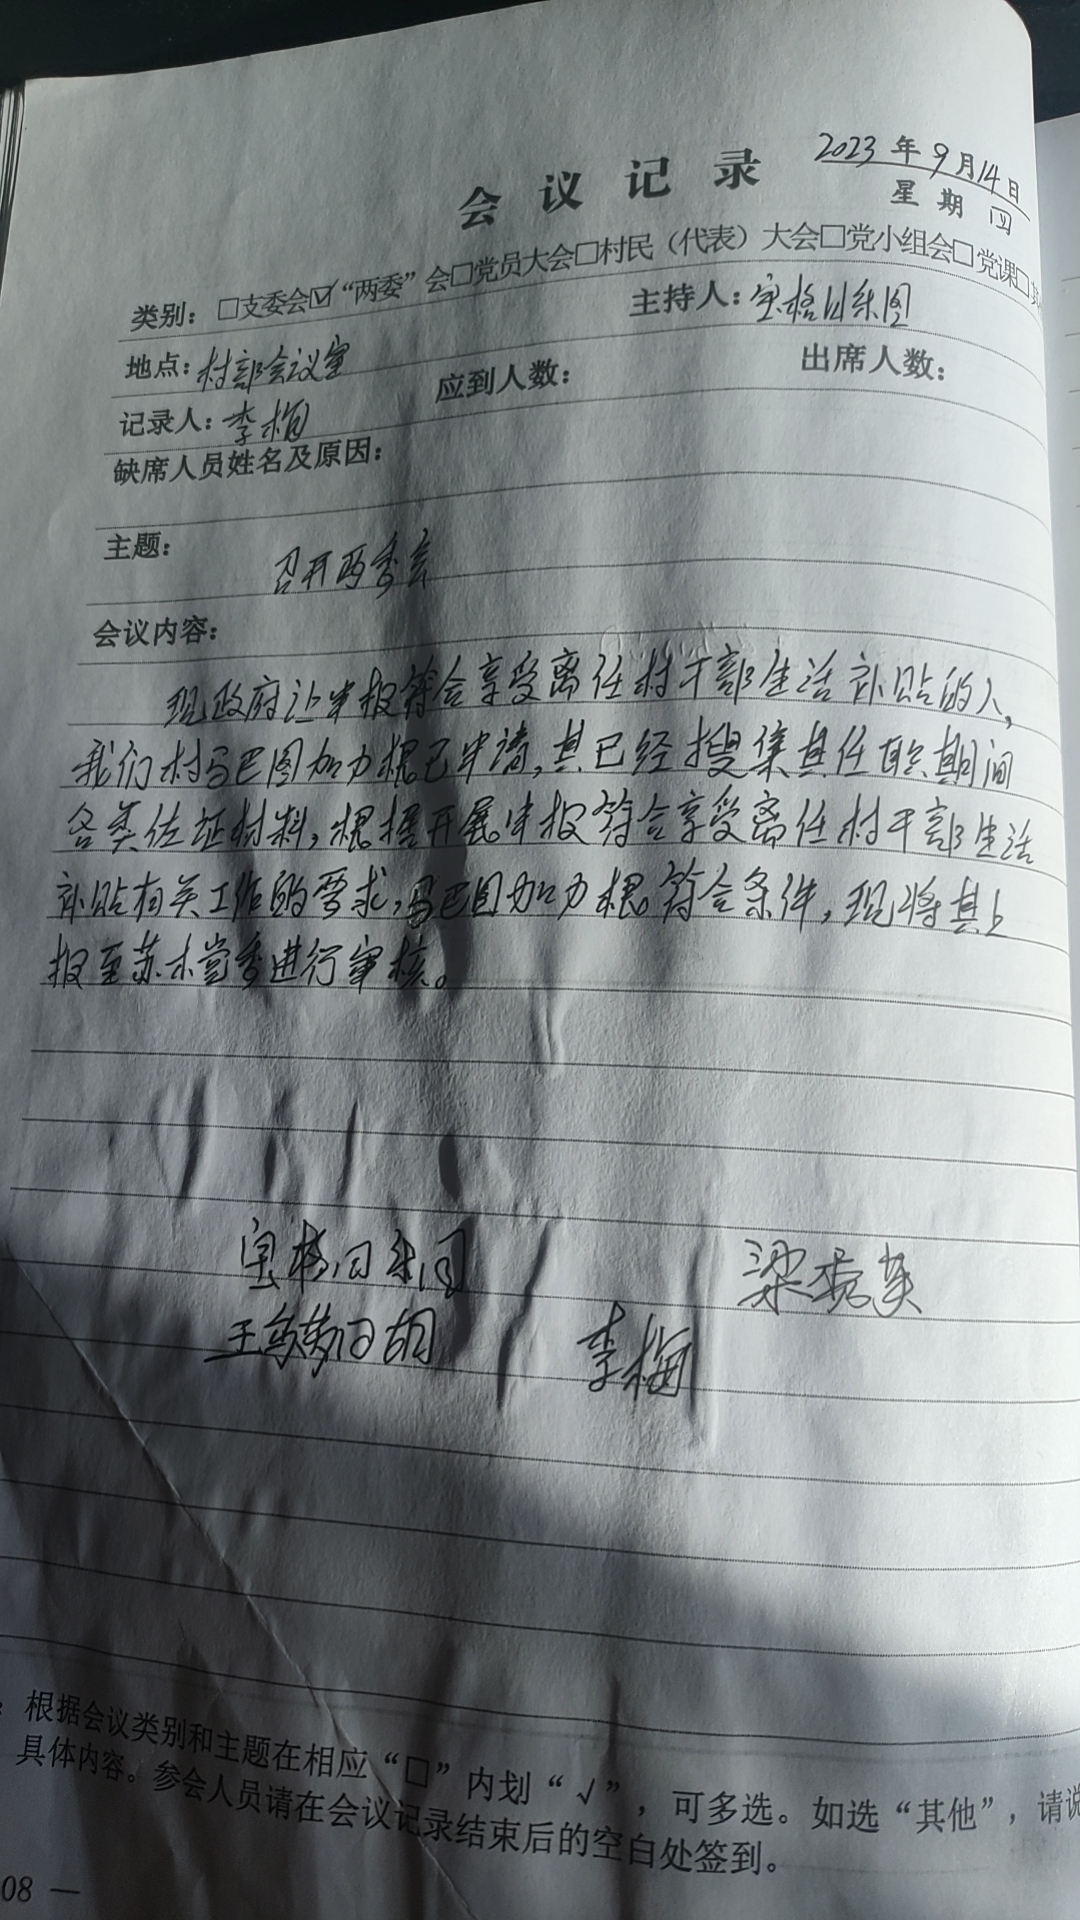 2023年9月14日
会议记录
星期四
类别：□支委会☑“两委”会□党员大会□村民（代表）大会□党小组会□党课□其
地点：村部会议室 主持人：宝格日朱图
记录人：李梅 应到人数： 出席人数：
缺席人员姓名及原因：
主题：
召开两委会
会议内容：
现政府让申报符合享受离任村干部生活补贴的人，
我们村乌巴图加力根已申请，其已经搜集其任职期间
各类佐证材料，根据开展申报符合享受离任村干部生活
补贴有关工作的要求，乌巴图加力根符合条件，现将其上
报至苏木党委进行审核。
宝格日朱图 梁秀英
李梅
：根据会议类别和主题在相应“□”内划“√”，可多选。如选“其他”，请说
具体内容。参会人员请在会议记录结束后的空白处签到。
08 —